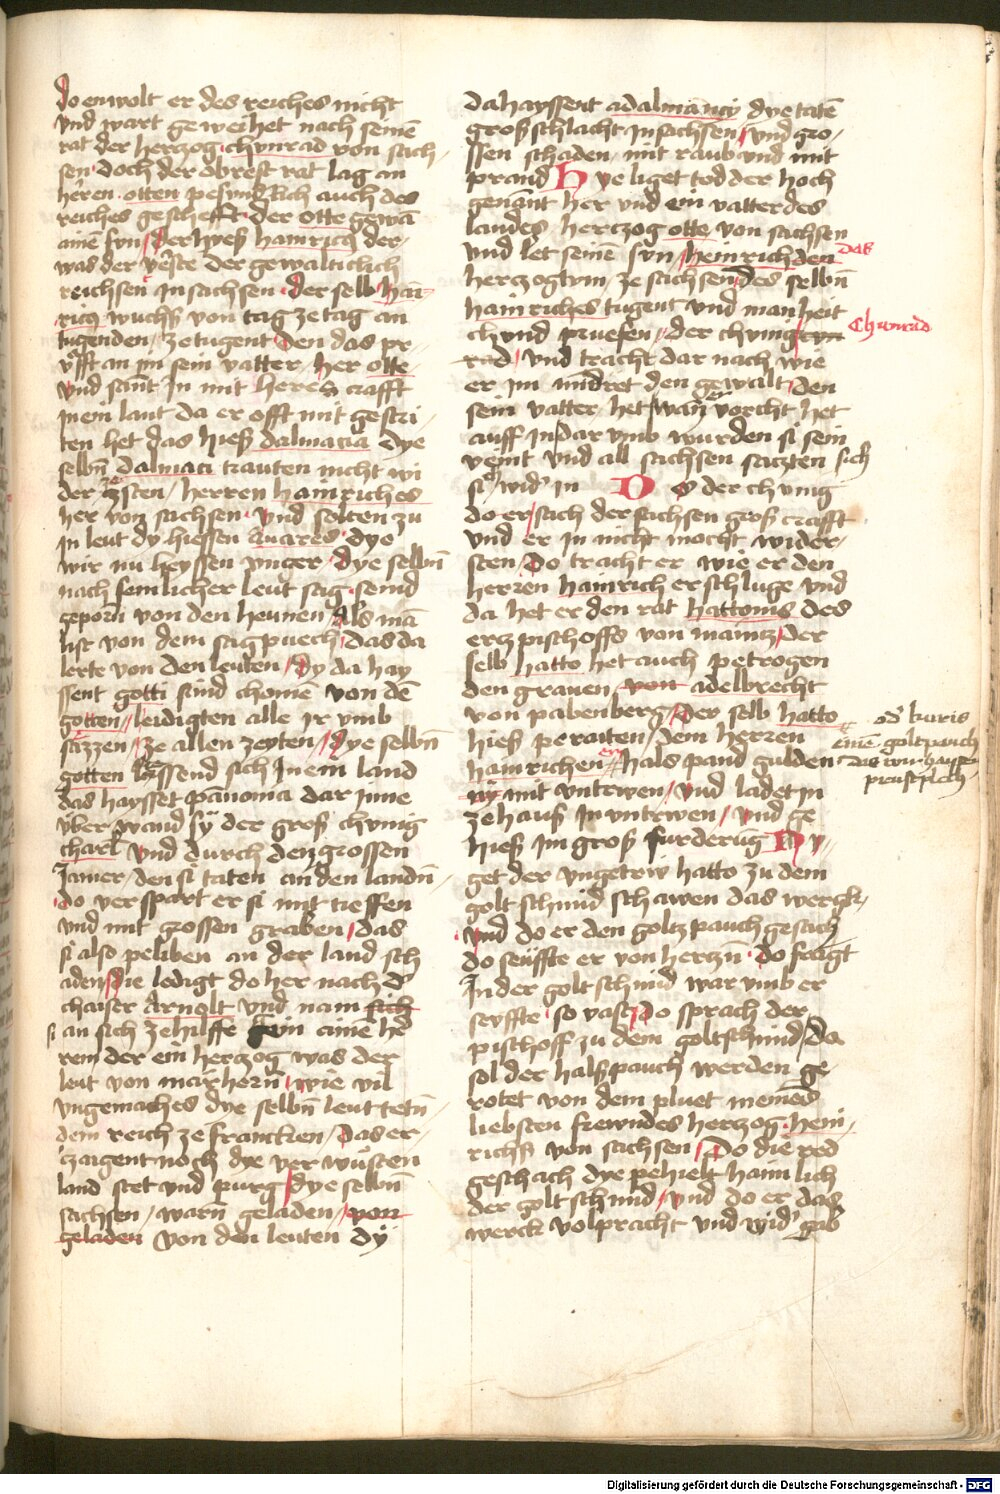 do enwolt er des reiches nicht
vnd wart geweihet nach seinē
rat der herczog chunrad von sach
sen doch der obrest rat lag an
herren otten pesunderlich auch des
reiches gescheft der otte gewā
ainē sun der hyeß hainrich der
was der erste der gewaltichlich
reichsen in sachsen der selb hai
rich wuchß von tag ze tag an
tugenden ze tugent Den das pr
ufft an im sein vatter her otte
vnd sant in mit heres crafft
in ein lant da er offt mit gestri
ten het das hieß dalmacia dye
selbn̄ dalmaci trauten nicht wi
der ze sten herren hainriches
her von sachsen vnd solten zu
in leut dy hiessen auares dye
wir nu heyssen vnger dye selbn̄
nach semlicher leut sag seind
geporn̄ von den heunen Als mā
list von dem sagpuech das da
lerte von den leuten dy da hay
ssent gotti sind chomē von dē
gotten leidigten alle ir vmb
säzzen ze allen zeyten dye selbn̄
gotten liessend sich in ein land
das haysset panonia dar inne
vber wand sÿ der groß chunig
charl vnd durch den grossen
Jamer den si taten an den landn̄
do verspart er si mit tieffen
vnd mit grossen graben das
si also peliben an der land sch
aden die ledigt do her nach d'
chaiser Arnolt vnd nam sich
si an sich ze hilffe ain ainē he
ren der ein herczog was der
leut von märhern̄ wie vil
vngemaches dye selbn̄ leut tetn̄
dem reich ze francken Das er
zaigent noch dye verwüsten
land stet vnd purg dye selbn̄
sachsen warn̄ geladen von
geladen von den leuten dÿ
da hayssent adalmancy dye tatē
groß schlacht in sachsen vnd gro
ssen schaden mit raub vnd mit
prand Hye liget tod der hoch
genant her vnd ein vatter des
landes herczog otte von sachsen
vnd let seinē sun heinrich den das
herczogtum ze sachsen des selbn̄
hainriches tugent vnd manheit
chund pruefen der chunig cun Chunrad
rad vnd tracht dar nach wie
er im mindret den gewalt den
sein vatter het wan er vorcht het
auff in Dar vmb wurden si sein
veint vnd all sachsen saczten sich
si wid' in Do der chunig
do er sach der sachsen groß crafft
vnd er in nicht mocht wider
sten Do tracht er wie er den
herren hainrich erschluge vnd
da het er den rat hattonis des
ercz pischoffs von maincz der
selb hatto het auch petrogen
den grauen von adelbrecht
von pabenberg der selb hatto
hieß peraiten dem herren
hainrichen en hals pand gulden
mit vntrwen vnd ladet in
ze hauß in vntrwen vnd ge
hieß im groß furderūg Dy
get der vngetriw hatto zu dem
golt schmid schawen das werck
vnd do er den goltz pauch gesach
do seüffte er von herczn̄ Do fragt
In der golt schmid war vmb er
seuffte so vast Do sprach der
pischoff zu dem goltschmid Da
sol der halßpauch werden ge
rotet von dem pluet meines
liebsten frewndes herczog hein
richß von sachsen Do die red
geschach dye pehielt haimlich
der golt schmid vnd do er das
werck volpracht vnd wid' gab
od' kuris
ainē goltpauch
das wir hayssē
prustplech
Digitalisierung gefördert durch die Deutsche Forschungsgemeinschaft - DFG